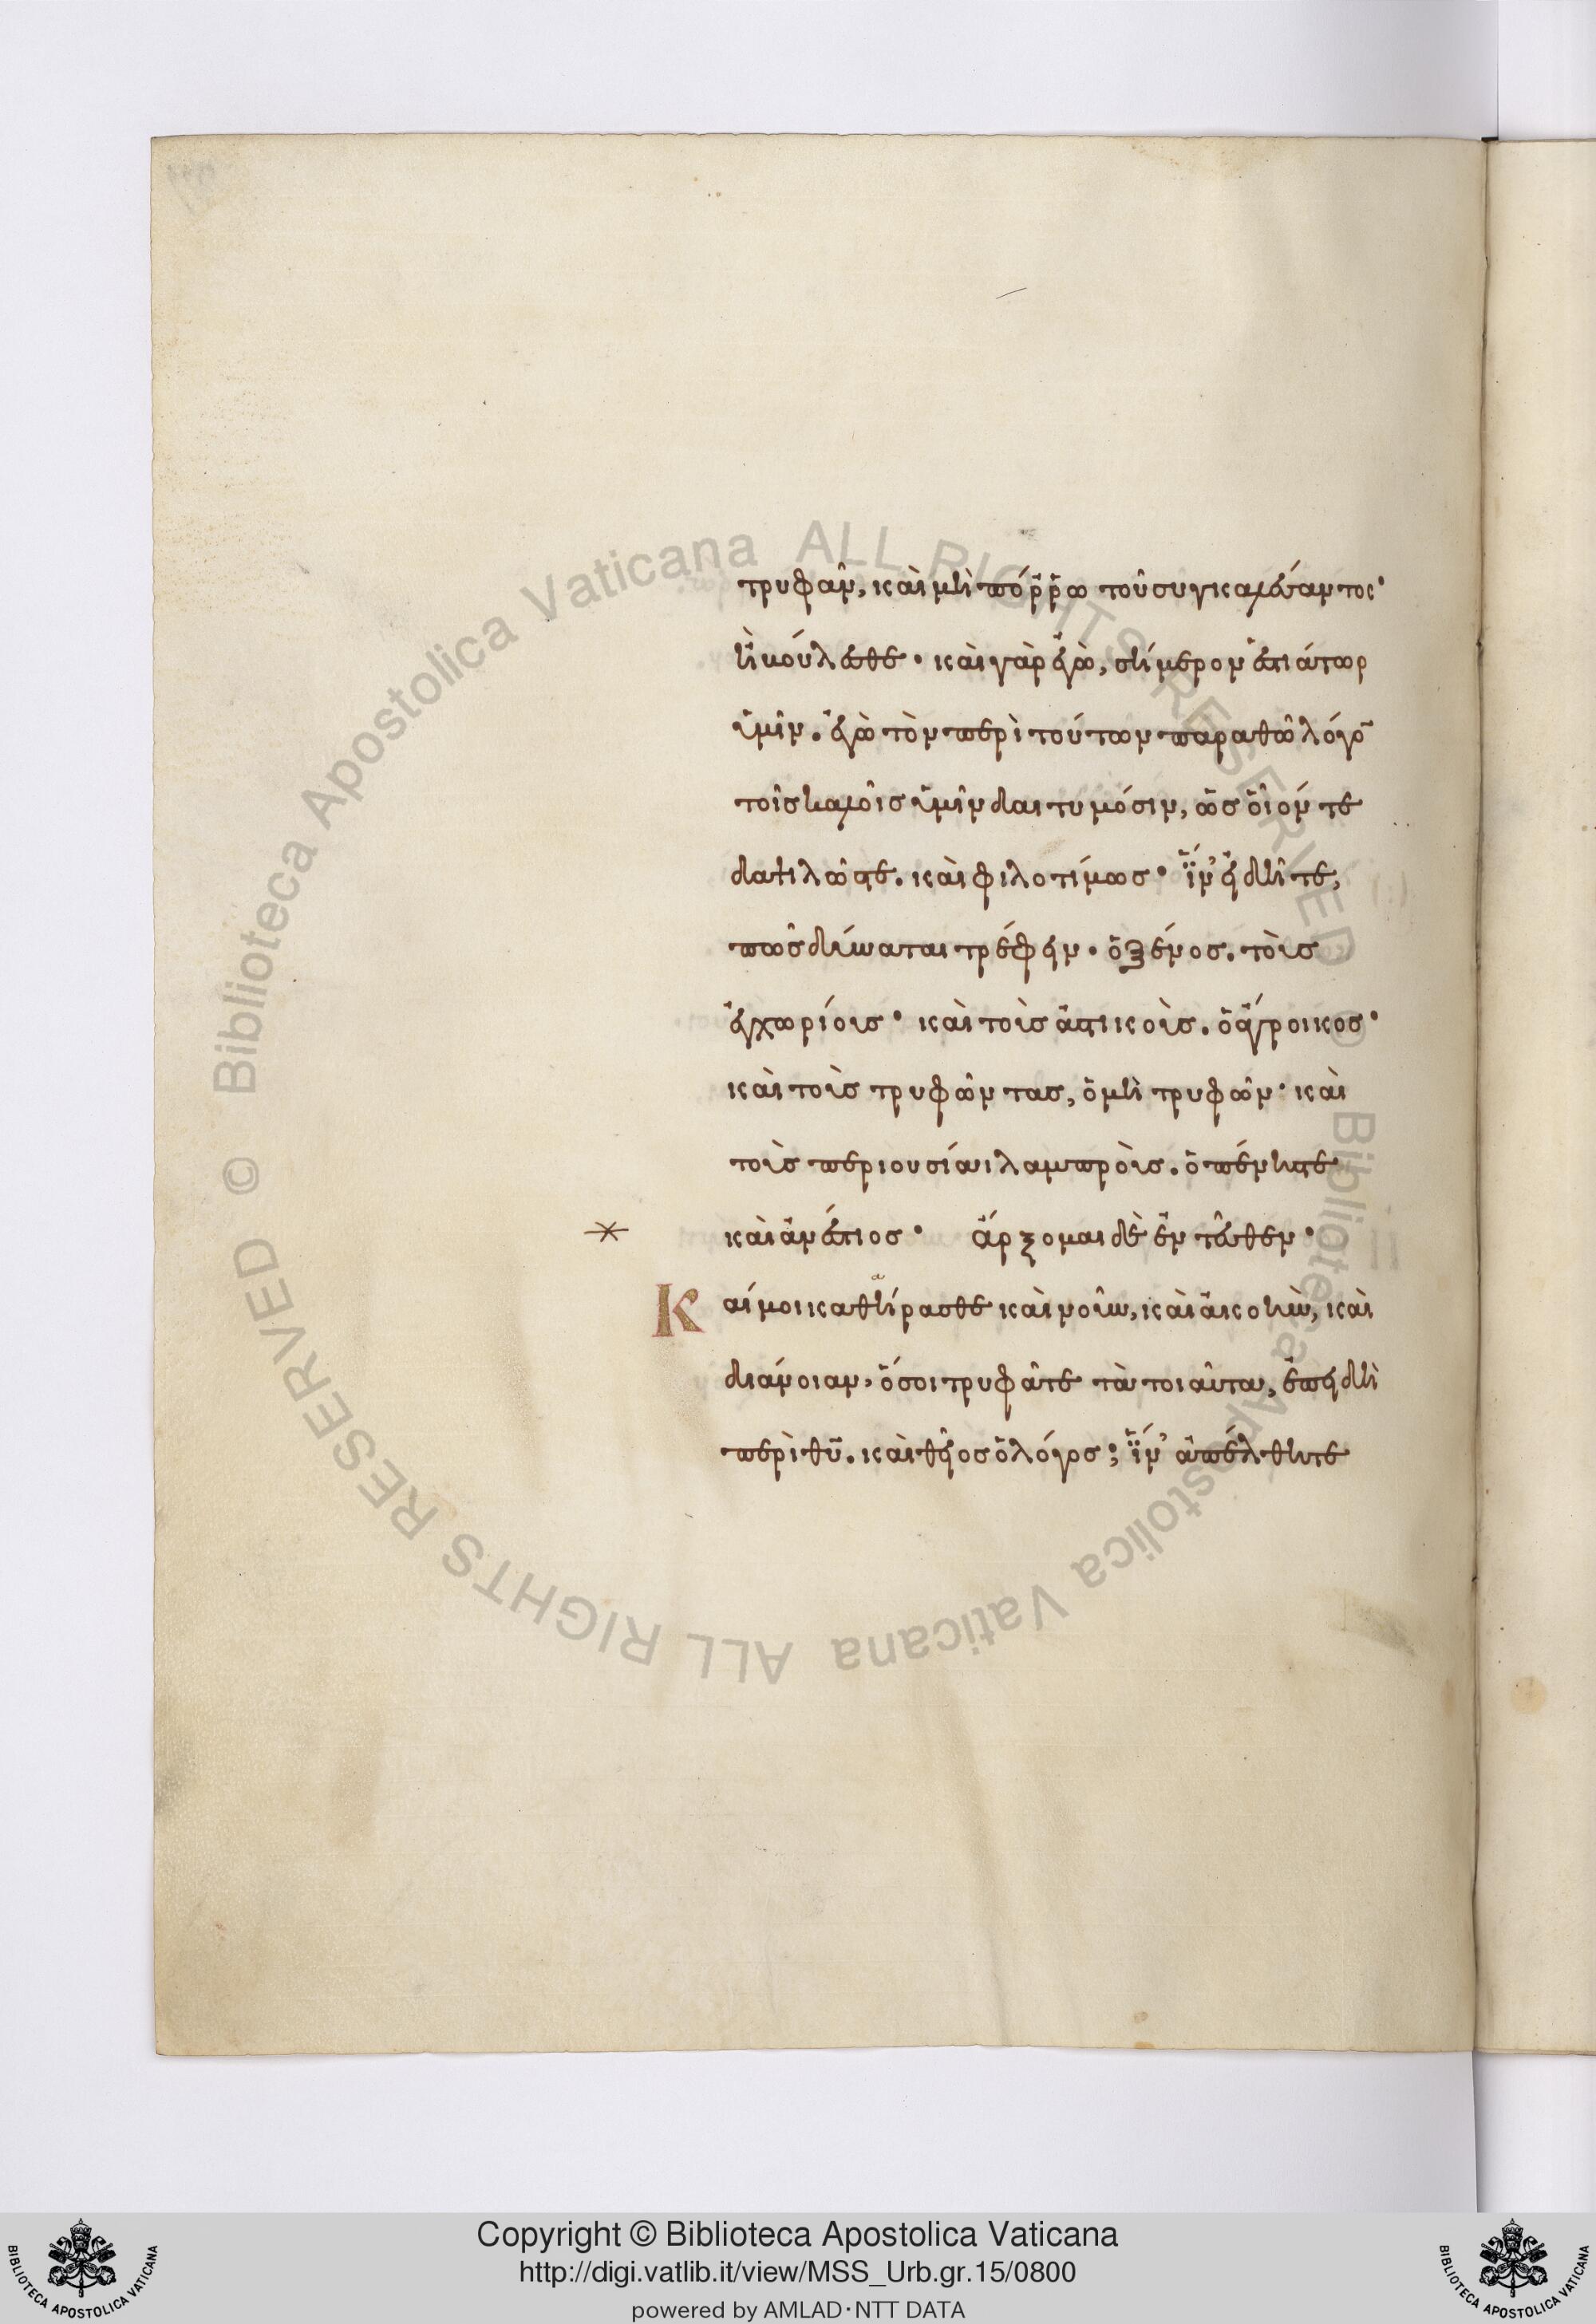 τρυφᾶν, καὶ μὴ πόῤῥω τοῦ συγκαλέσαντος
ἠβούλεσθε· καὶ γὰρ ἐγὼ, σήμερον ἑστιάτωρ
ὑμῖν. ἐγὼ τὸν περὶ τούτων παραθῶ λόγο̄
τοῖς καλοῖς ὑμῖν δαιτυμόσιν, ὡς οἷόν τε
δαψιλῶς τε. καὶ φιλοτίμως· ἵν' εἰδῆτε,
πῶς δύναται τρέφειν. ὁ ξένος. τοὺς
ἐγχωρίους· καὶ τοὺς ἀστικοὺς. ὁ ἄγροικος·
καὶ τοὺς τρυφῶντας, ὁ μὴ τρυφῶν· καὶ
τοὺς περιουσίαι λαμπροὺς. ὁ πένης τε
καὶ ἀνέστιος· ἄρξομαι δὲ ἐντεῦθεν·
Καί μοι καθήρασθε καὶ νοῦν, καὶ ἀκοὴν, καὶ
διάνοιαν, ὅσοι τρυφᾶτε τὰ τοιαῦτα, ἐπειδὴ
περὶ θῦ. καὶ θεῖος ὁ λόγος; ἵν' ἀπέλθητε
Copyright © Biblioteca Apostolica Vaticana
http://digi.vatlib.it/view/MSS_Urb.gr.15/0800
powered by AMLAD·NTT DATA
BIBLIOTECA APOSTOLICA VATICANA
BIBLIOTECA APOSTOLICA VATICANA
© Biblioteca Apostolica Vaticana ALL RIGHTS RESERVED
© Biblioteca Apostolica Vaticana ALL RIGHTS RESERVED